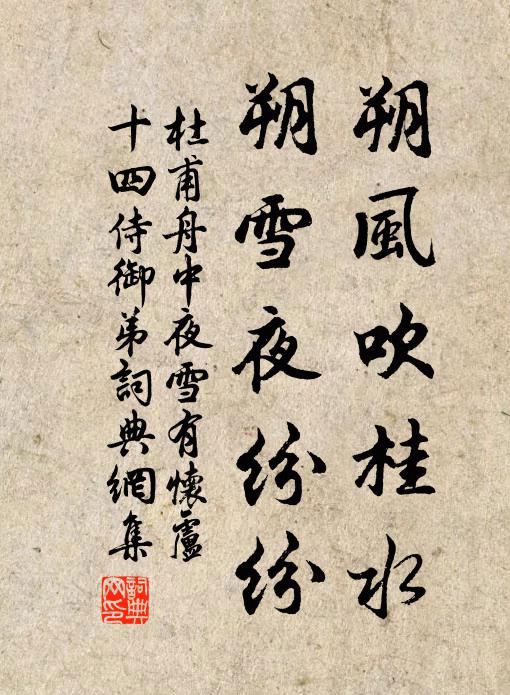 朔風吹桂水
朔雪夜紛紛
杜甫舟中夜雪有懷盧
十四侍御弟詞典網集
詞典网印